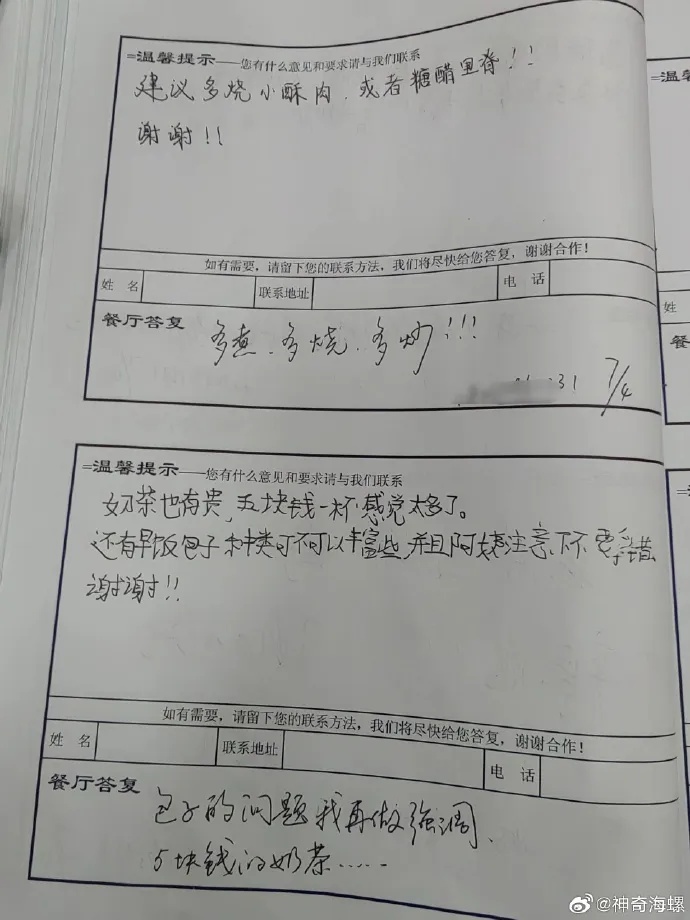 =温馨提示——您有什么意见和要求请与我们联系
建议多烧小酥肉、或者糖醋里脊!!
谢谢!!
如有需要，请留下您的联系方法，我们将尽快给您答复，谢谢合作！
姓 名 联系地址 电 话
餐厅答复
多煮、多烧、多炒!!!
31 7/4
=温馨提示——您有什么意见和要求请与我们联系
奶茶也有贵，五块钱一杯感觉太多了。
还有早饭包子种类可不可以丰富些，并且阿姨注意下不要拿错
谢谢!!
如有需要，请留下您的联系方法，我们将尽快给您答复，谢谢合作！
姓 名 联系地址 电 话
餐厅答复
包子的问题我再做强调、
5块钱的奶茶……
=温馨
姓
餐厅
=温
姓
餐
@神奇海螺